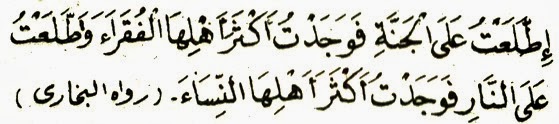 إِطَّلَعْتُ عَلَى الْجَنَّةِ فَوَجَدْتُ أَكْثَرَ أَهْلِهَا الْفُقَرَاءَ وَطَّلَعْتُ
عَلَى النَّارِ فَوَجَدْتُ أَكْثَرَ أَهْلِهَا النِّسَاءَ. (رواه البخارى)